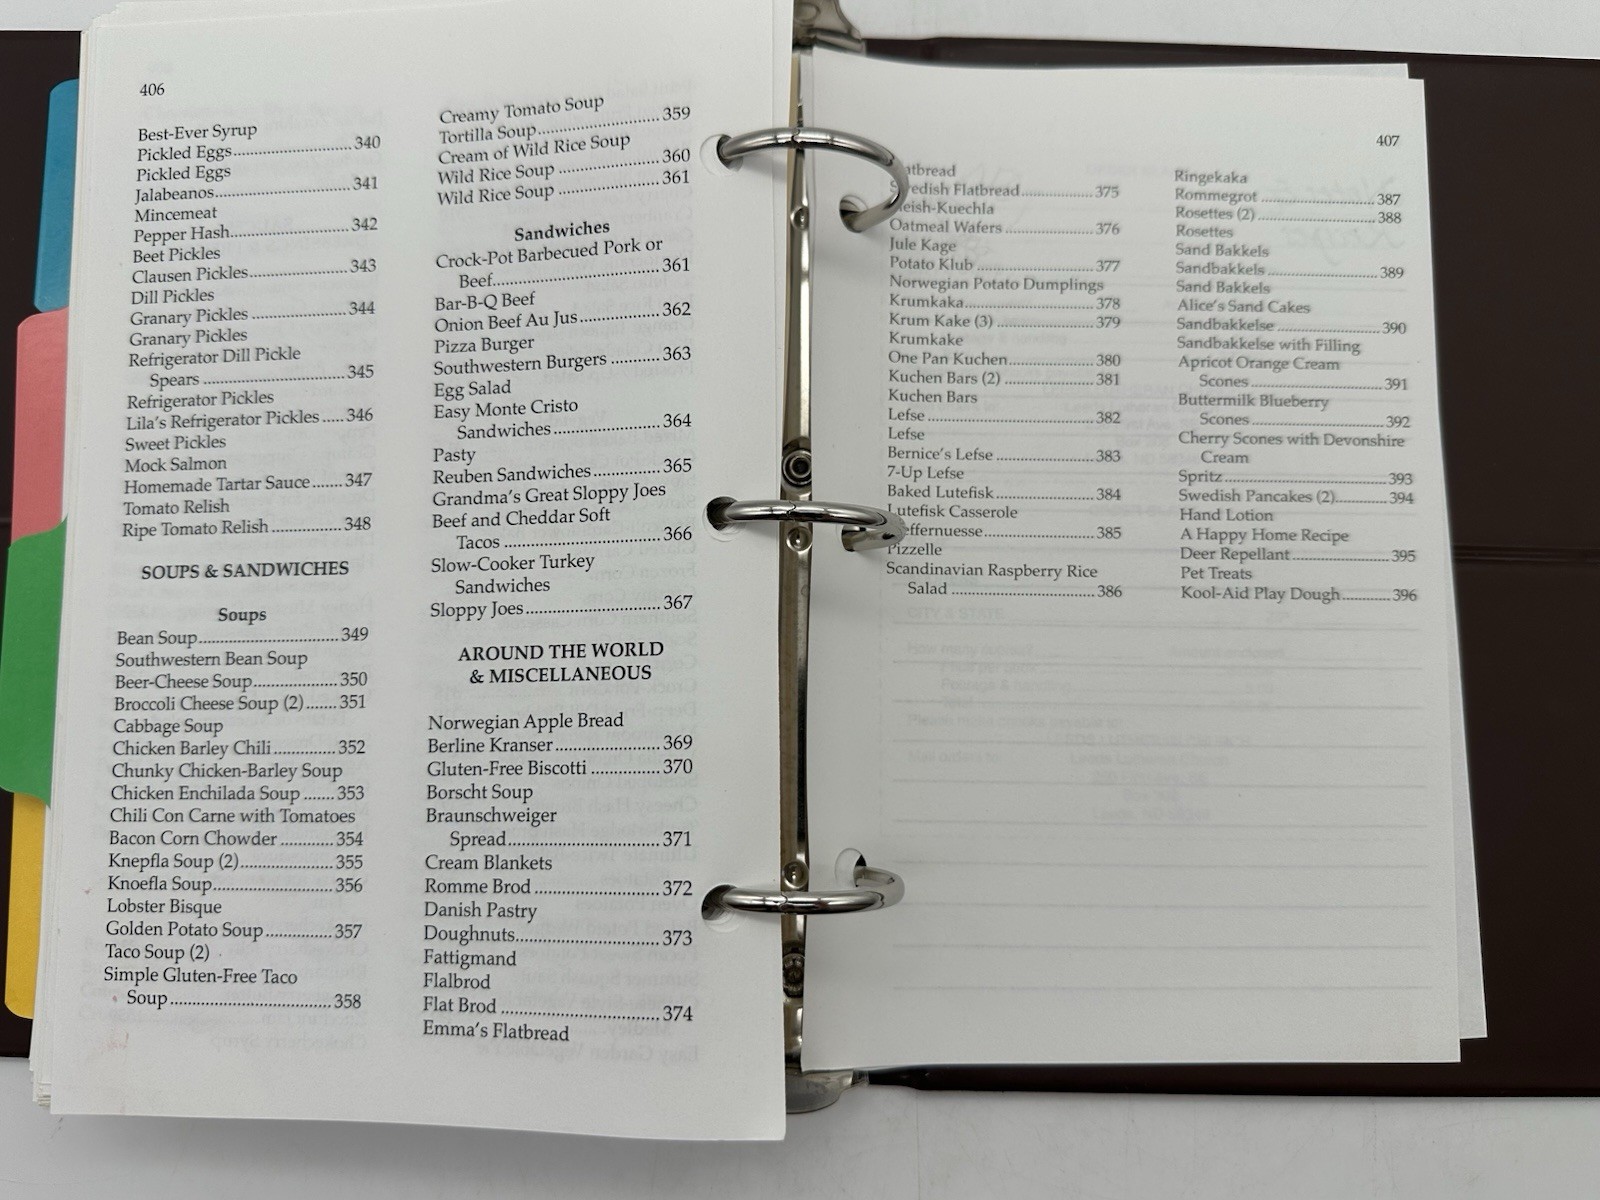 406
Best-Ever Syrup
Pickled Eggs..............................340
Pickled Eggs
Jalabeanos.................................341
Mincemeat
Pepper Hash..............................342
Beet Pickles
Clausen Pickles.........................343
Dill Pickles
Granary Pickles ........................344
Granary Pickles
Refrigerator Dill Pickle
Spears ...................................345
Refrigerator Pickles
Lila's Refrigerator Pickles .....346
Sweet Pickles
Mock Salmon
Homemade Tartar Sauce.......347
Tomato Relish
Ripe Tomato Relish .................348
SOUPS & SANDWICHES
Soups
Bean Soup..................................349
Southwestern Bean Soup
Beer-Cheese Soup....................350
Broccoli Cheese Soup (2).......351
Cabbage Soup
Chicken Barley Chili ...............352
Chunky Chicken-Barley Soup
Chicken Enchilada Soup .......353
Chili Con Carne with Tomatoes
Bacon Corn Chowder .............354
Knepfla Soup (2).......................355
Knoefla Soup.............................356
Lobster Bisque
Golden Potato Soup................357
Taco Soup (2)
Simple Gluten-Free Taco
Soup.......................................358
Creamy Tomato Soup
Tortilla Soup..............................359
Cream of Wild Rice Soup
Wild Rice Soup .........................360
Wild Rice Soup .........................361
Sandwiches
Crock-Pot Barbecued Pork or
Beef........................................361
Bar-B-Q Beef
Onion Beef Au Jus...................362
Pizza Burger
Southwestern Burgers ............363
Egg Salad
Easy Monte Cristo
Sandwiches ..........................364
Pasty
Reuben Sandwiches................365
Grandma's Great Sloppy Joes
Beef and Cheddar Soft
Tacos .....................................366
Slow-Cooker Turkey
Sandwiches
Sloppy Joes................................367
AROUND THE WORLD
& MISCELLANEOUS
Norwegian Apple Bread
Berline Kranser........................369
Gluten-Free Biscotti ................370
Borscht Soup
Braunschweiger
Spread...................................371
Cream Blankets
Romme Brod ............................372
Danish Pastry
Doughnuts................................373
Fattigmand
Flalbrod
Flat Brod ...................................374
Emma's Flatbread
407
atbread
Swedish Flatbread....................375
leish-Kuechla
Oatmeal Wafers .......................376
Jule Kage
Potato Klub ..............................377
Norwegian Potato Dumplings
Krumkaka.................................378
Krum Kake (3) .........................379
Krumkake
One Pan Kuchen......................380
Kuchen Bars (2) .......................381
Kuchen Bars
Lefse ..........................................382
Lefse
Bernice's Lefse .........................383
7-Up Lefse
Baked Lutefisk.........................384
Lutefisk Casserole
effernuesse............................385
Pizzelle
Scandinavian Raspberry Rice
Salad .....................................386
Ringekaka
Rommegrot .............................387
Rosettes (2) ..............................388
Rosettes
Sand Bakkels
Sandbakkels ............................389
Sand Bakkels
Alice's Sand Cakes
Sandbakkelse ..........................390
Sandbakkelse with Filling
Apricot Orange Cream
Scones...................................391
Buttermilk Blueberry
Scones...................................392
Cherry Scones with Devonshire
Cream
Spritz.........................................393
Swedish Pancakes (2)..............394
Hand Lotion
A Happy Home Recipe
Deer Repellant.........................395
Pet Treats
Kool-Aid Play Dough..............396